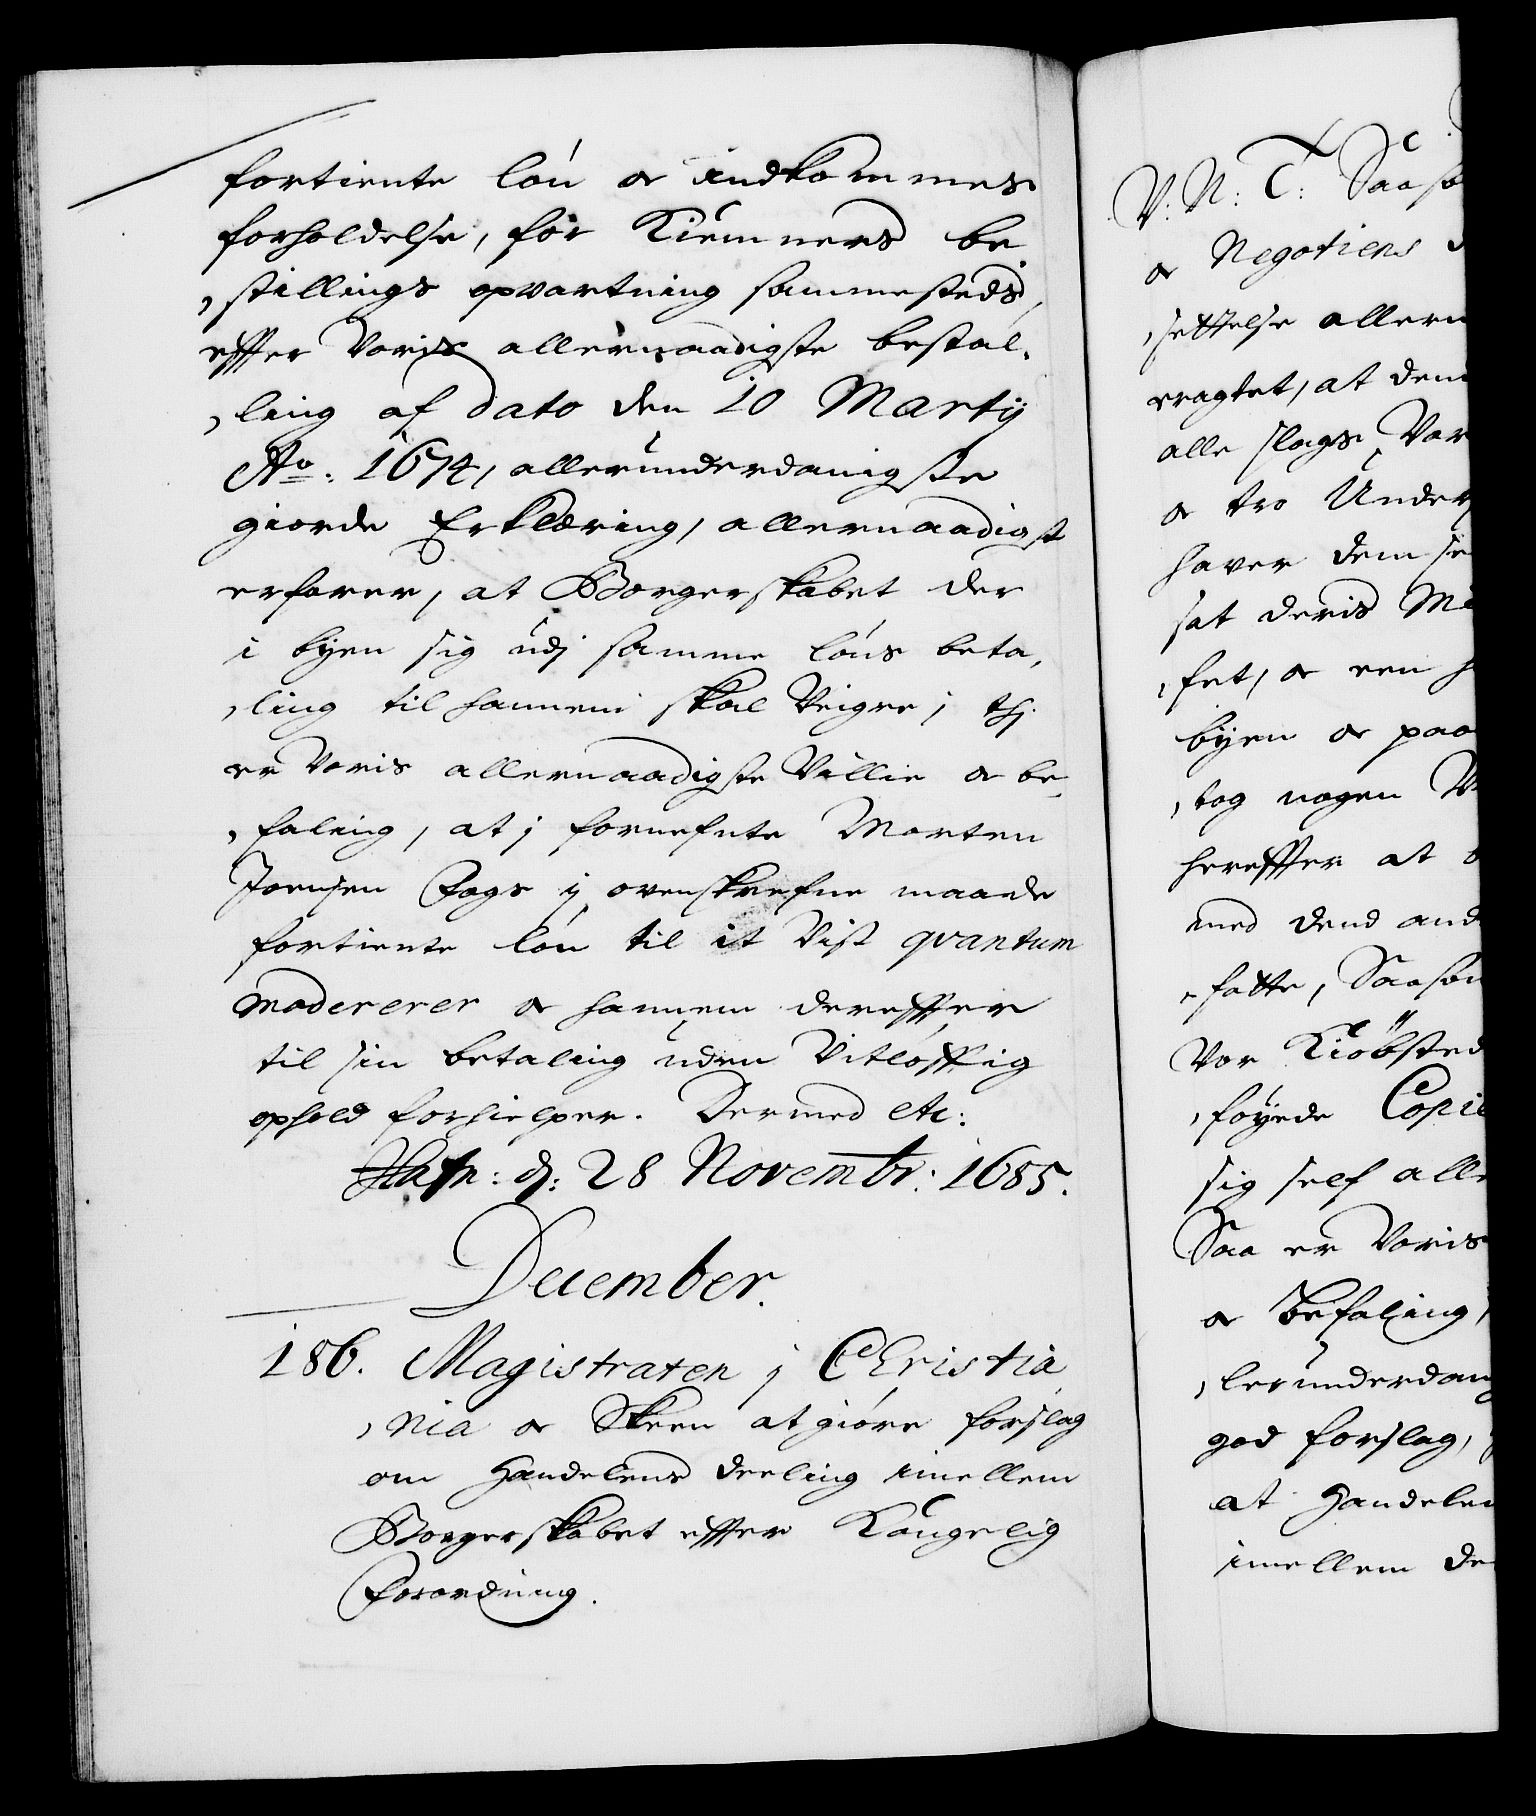 fortiente løn og indkommes
forholdelse, for Kiemners be
,stillings opvartning sammesteds,
effter Voris allernaadigste bestal,
,ling af dato den 10 Martij
Ao: 1674, allerunderdanigste
giorde Erklæring, allernaadigst
erfarer, at Borgerskabet der
i byen sig udj samme løns beta,
,ling til hannem skal Veigre; thj
er Voris allernaadigste Villie og be,
,faling, at j fornefnte Morten
Joensen Fogs ij ovenskrefne maade
fortiente løn til it Vist qvantum
modererer og hannem dereffter
til sin betaling uden Vitløfftig
ophold forhielper. Dermed etc:
Hafn: d: 28 Novembr: 1685.
December.
186. Magistraten j Christia
,nia og Skeen at giøre forslag
om Handelens deeling imellem
Borgerskabet effter Kongelig
Forordning.
V: N: T: Saaso
og Negotiens
,settelse allern
eragtet, at dem
alle slags Var
og tro Under
haver dem se
sat deris Mi
,fet, og een h
byen og paa
,tog nogen
hereffter at
med dend and
,fatte, Saason
Vor Kiøbsted
,føyede Copie
sig self alle
Saa er Voris
og Befaling,
,lerunderdanig
god forslag,
at Handelen
imellem de